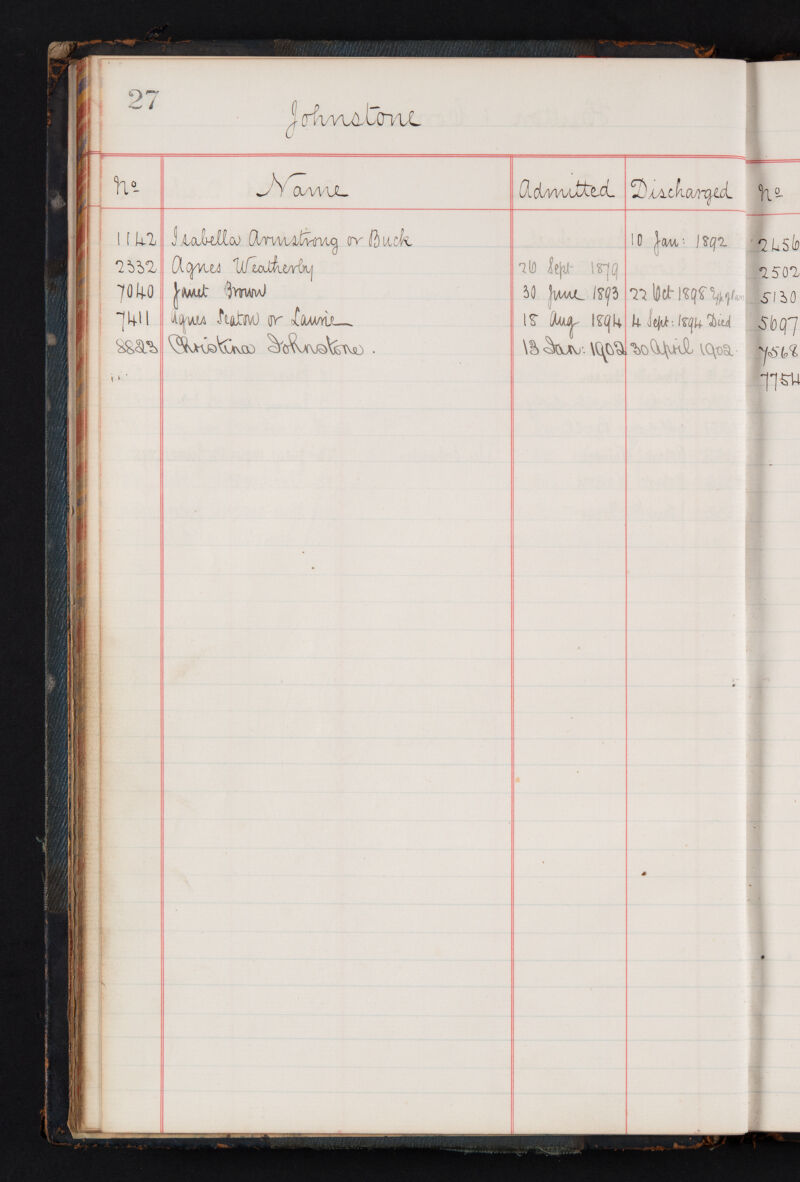 27
Johnstone
No Name Admitted Discharged No
1142 Isabella Armstrong or Buck 10 Jan: 1892 2456
2332 Agnes Weatherby 26 Sept 1879 2502
7040 Janet Brown 30 June 1893 22 Oct 1898 5130
7411 Agnes Seaton or Laurie 18 Aug 1894 4 Sept: 1894 Died 5697
8823 Christina Johnstone. 13 Jan: 1902 30 April 1902 7568
7754